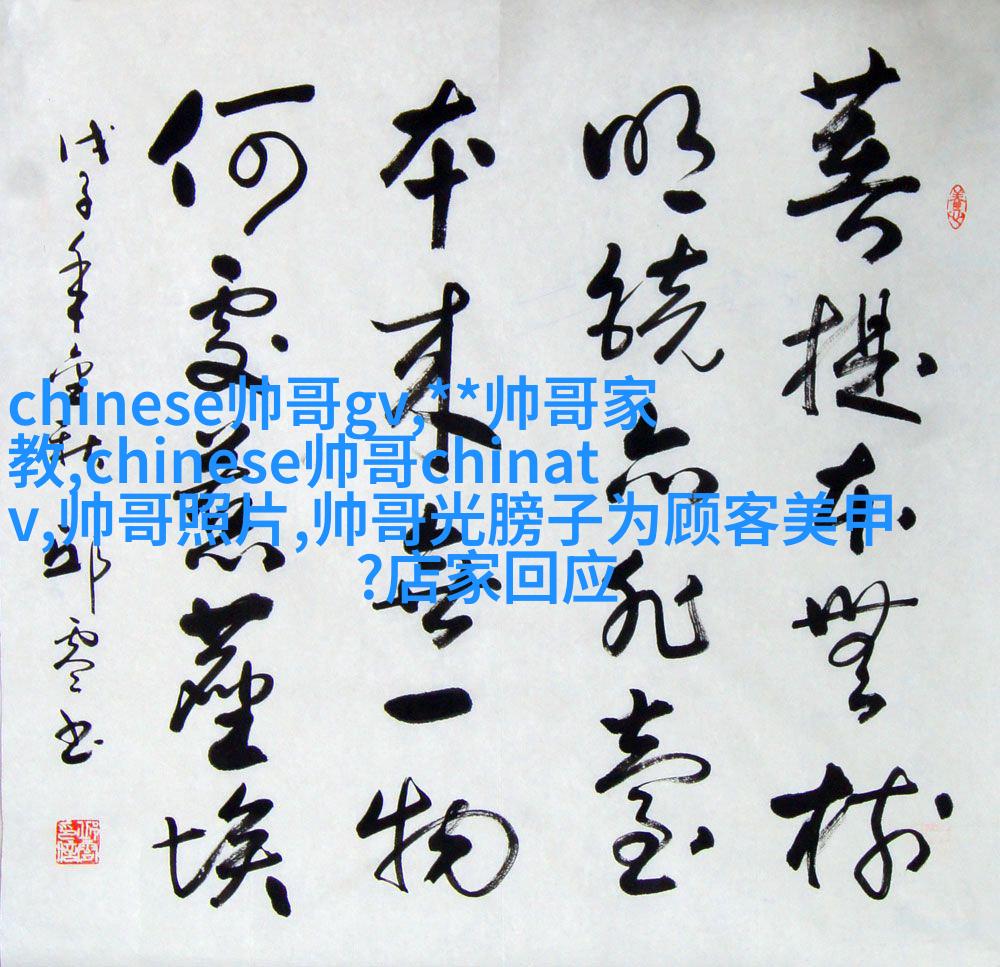 菩提本無樹
明鏡亦非臺
本来無一物
何處惹塵埃
戊子年金秋邱零书
chinese帅哥gv,**帅哥家
教,chinese帅哥chinat
v,帅哥照片,帅哥光膀子为顾客美甲
?店家回应